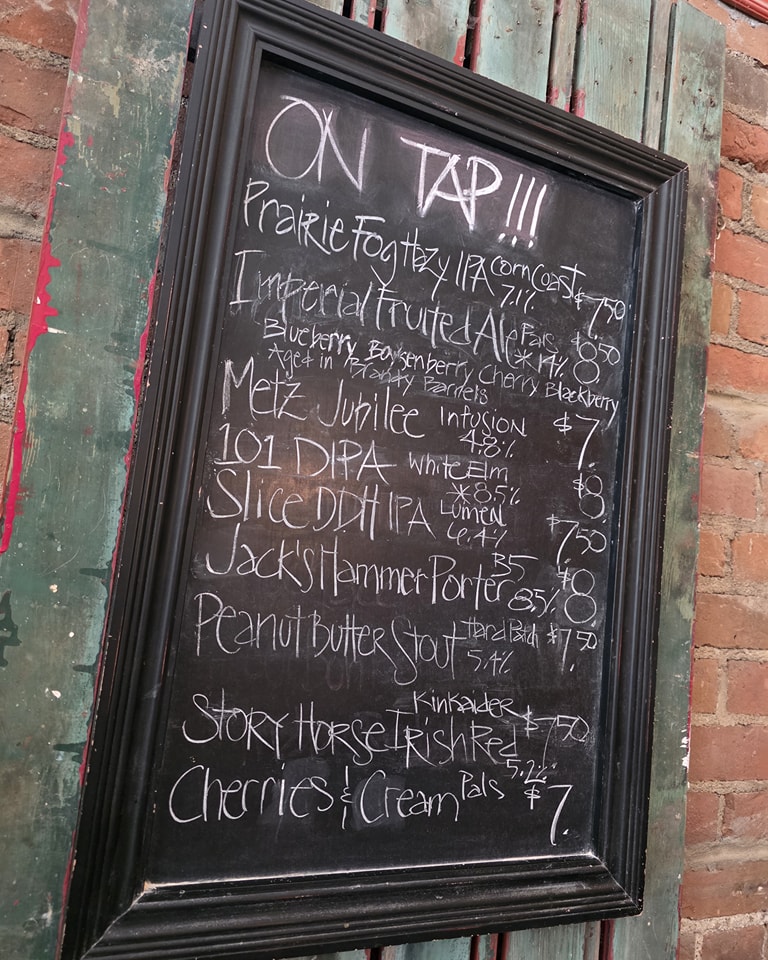 ON TAP!!!
Prairie Fog Hazy IPA Corn Coast 7.1% $7.50
Imperial Fruited Ale Pals *14% 8.50
Blueberry Boysenberry Cherry Blackberry
Aged in Brandy Barrels
Metz Jubilee Infusion 4.8% $7.
101 DIPA White Elm *8.5% $8
Slice DDH IPA Lumen 6.4% $7.50
Jack's Hammer Porter B5 8.5% $8
Peanut Butter Stout 5.4% $7.50
Story Horse Irish Red Kinkaider 5.2% $7.50
Cherries & Cream Pals $7.